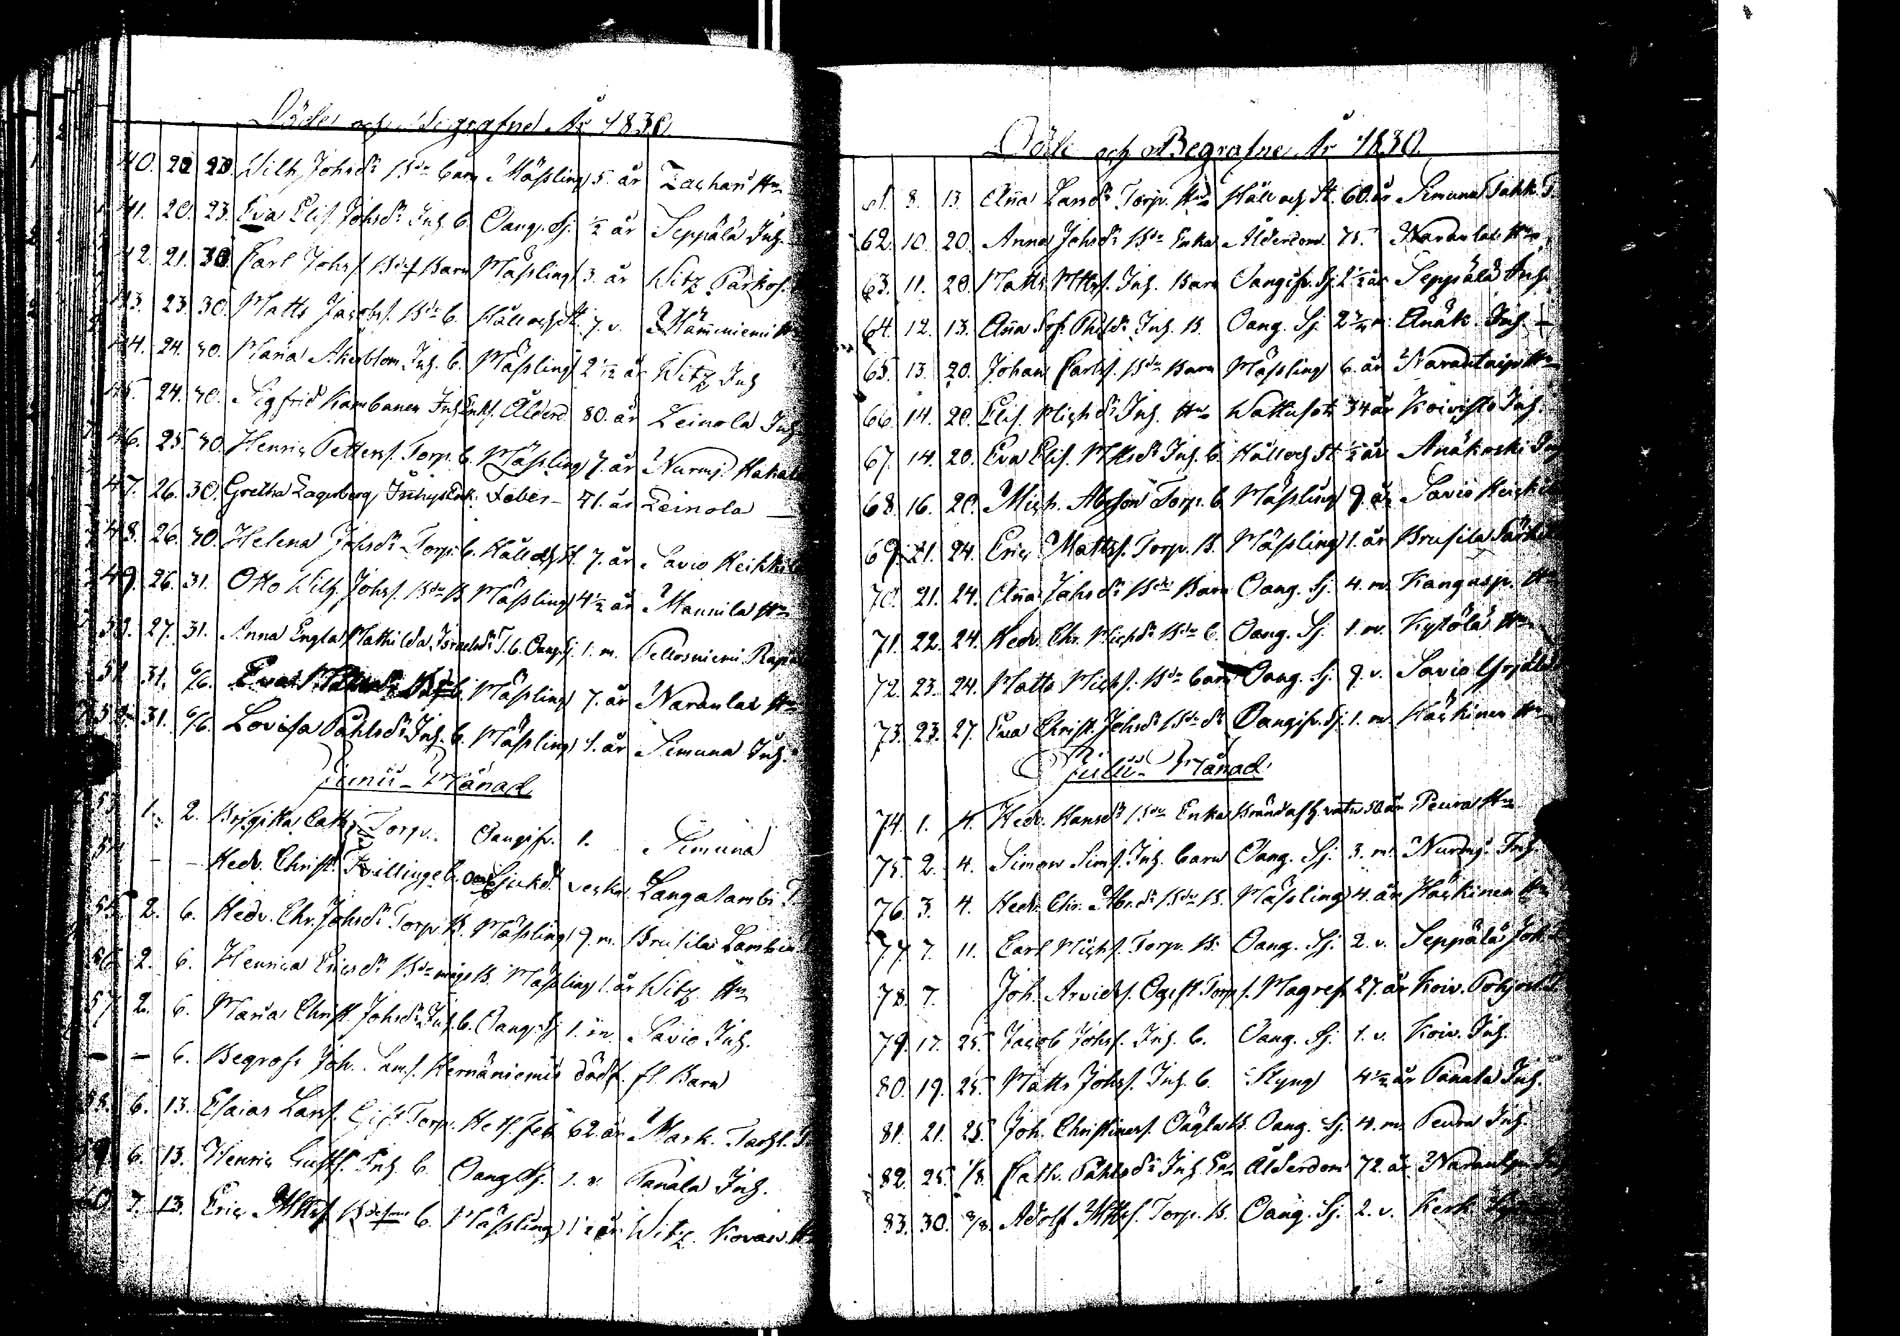 Döde och Begrafne År 1830
40. 20 20. Wilh. Johsdr Bde barn Mäßling 5. år Zachari Hn
41. 20. 23. Eva Elis. Johsdr Inh. b. Oang. Sj. ½ år Seppälä Inh.
42. 21. 30 Carl Johs. Barn Mäßling 3. år Witz Pärkof.
43. 23. 30. Matts Jacobs. Bde b. Håll och St. 7. v. Hämeniemi
44. 24. 30. Maria Åkerblom Inh. b. Mäßling 2 1/12 år Witz Inh
45. 24. 30. Sigfrid Kambanen Inh Enkl. Ålderd 80. år Leinola Inh
46. 25. 30. Henric Petters. Torp. b. Mäßling 7. år Nurmi Hakala
47. 26. 30. Gretha Lagerberg Inhys Enk. Feber 71. år Leinola —
48. 26. 30. Helena Johsdr Torp. b. Håll och St 7. år Savio Heikkilä
49. 26. 31. Otto Wilh. Johs. Bde B. Mäßling 4½ år Mannila Hn
50. 27. 31. Anna Engla Mathilda Israelsdr T. b. Oang Sj. 1. m. Pellosniemi
51 31. 6/6. Eva b. Mäßling 7. år Naranlax Hn
52. 31. 6/6. Lovisa Påhlsdr Inh. b. Mäßling 1. år Simuna Inh.
Junii Månad
53. 1. 2. Birgitta Cath. Torp. Oangifv. 1. Simuna
54. — — Hedv. Christ. Tvillinge b. Sjukd. vecka Langalambi T.
55. 2. 6. Hedv. Chr. Johsdr Torp. B. Mäßling 9. m. Brusila
56. 2. 6. Henrica Ericsdr B. Mäßling 1. år Witz Hn
57. 2. 6. Maria Christ. Johsdr Inh. b. Oang. Sj 1. m. Savio Inh.
— — 6. Begrofs Joh. Hernäniemis dödf. fl. Barn
58. 6. 13. Esaias Lars. Gift Torp. Hets Feb 62. år Mark.
59. 6. 13. Henric Gusts. Inh. b. Oang Sj. 1. v. Panala Inh.
60. 7. 13. Eric Mtts. b. Mäßling 1½ år Witz. Hn
Döde och Begrafne År 1830.
61. 8. 13. Anna Larsdr Torp. Hu Håll och St. 60. år Simuna
62. 10. 20. Anna Johsdr Bde Enka Ålderdom 75. Naranlax Hn
63. 11. 20. Matts Mtts. Inh. Barn Oangifv. Sj. 2½ år Seppälä Inh.
64. 12. 13. Anna Sof. Inh. B. Oang. Sj. 2 m. Anäk. Inh —
65. 13. 20. Johan Carls. Bde Barn Mäßling 6. år Hn
66. 14. 20. Elis. Michsdr Inh. Hu Wattusot 34 år Koivisto Inh.
67. 14. 20. Eva Elis. Mttsdr Inh. b. Håll och St ½ år Anäkoski
68. 16. 20. Mich. Torp. b. Mäßling 9. år Savio Heikkilä
69. 21. 24. Eric Matts. Torp. B. Mäßling 1. år Brusila
70. 21. 24. Anna Johsdr Bde Barn Oang. Sj. 4. m. Kangasp. Hn
71. 22. 24. Hedv. Chr. Michsdr Bde b. Oang. Sj. 1. m. Kytölä Hn
72. 23. 24. Matts Michs. Bde barn Oang. Sj. 9. v. Savio Yrjälä
73. 23. 27. Eva Christ. Johsdr Bde Oangifv. Sj. 1. m. Häkinen Hn
Julii Månad
74. 1. 4. Hedv. Hansdr Bde Enka 50 år Peura Hn
75. 2. 4. Simon Sims. Inh. barn Oang. Sj. 3. m. Nurmi Inh.
76. 3. 4. Hedv. Chr. Bde B. Mäßling 4. år Häkinen Hn
77 7. 11. Carl Michs. Torp. B. Oang. Sj. 2. v. Seppälä
78. 7. Joh. Arvids. Ogift Torp s. Magref 27. år Koiv.
79. 17. 25. Jacob Johs. Inh. b. Oang. Sj. 1. v. Koiv. Inh.
80. 19. 25. Matts Johs. Inh. b. Styng 4½ år Panala Inh.
81. 21. 25. Joh. Christiners. Oägta B. Oang. Sj. 4. m. Peura Inh.
82. 25. 1/8. Cath. Påhlsdr Inh. En Ålderdom 72. år
83. 30. 8/8. Adolf Mtts. Torp. B. Oang. Sj. 2. v. Kerk.